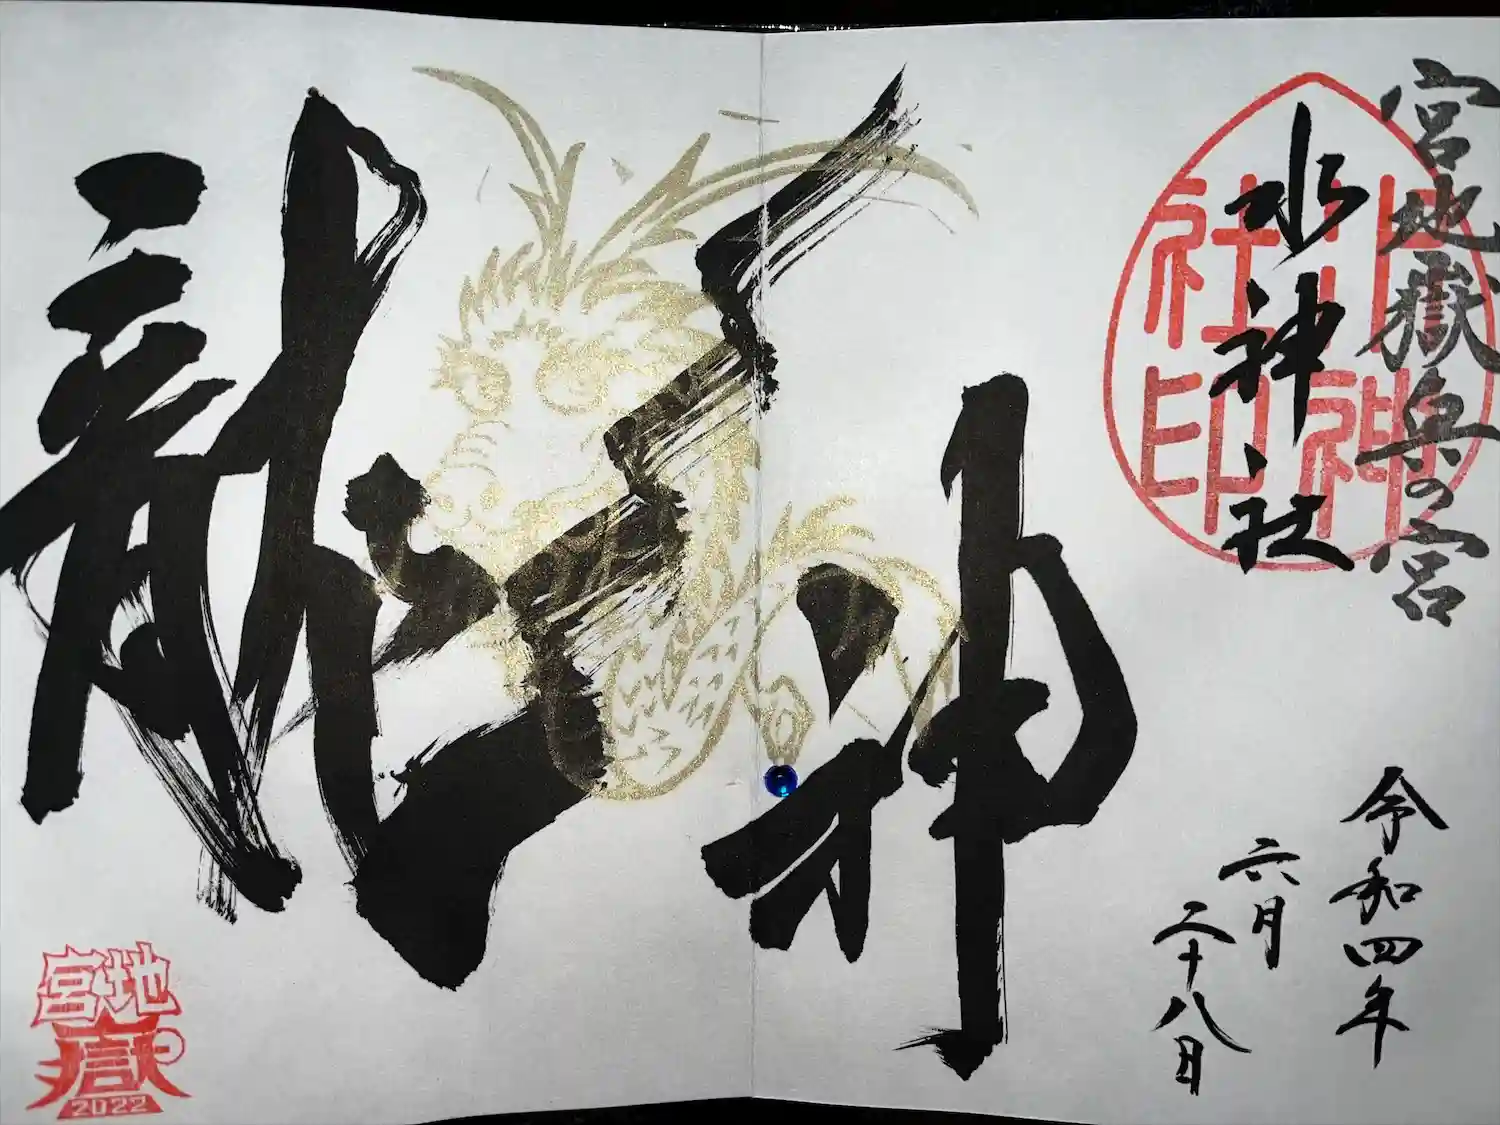 宮地嶽奥の宮
水神社
水神社印
龍神
令和四年
六月
二十八日
宮地
嶽
2022